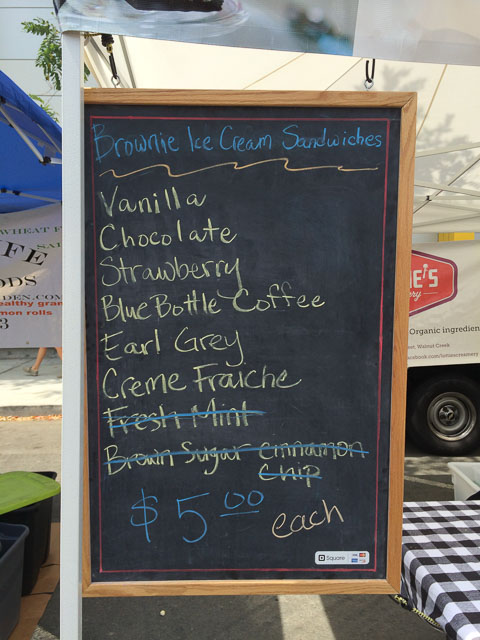 Brownie Ice Cream Sandwiches
Vanilla
Chocolate
Strawberry
Blue Bottle Coffee
Earl Grey
Creme Fraiche
Fresh Mint
Brown Sugar cinnamon
Chip
$5.00 each
Square
WHEAT F
FE
ODS
DEN.COM
ealthy gran
mon rolls
3
E'S
ery
Organic ingredien
Walnut Creek